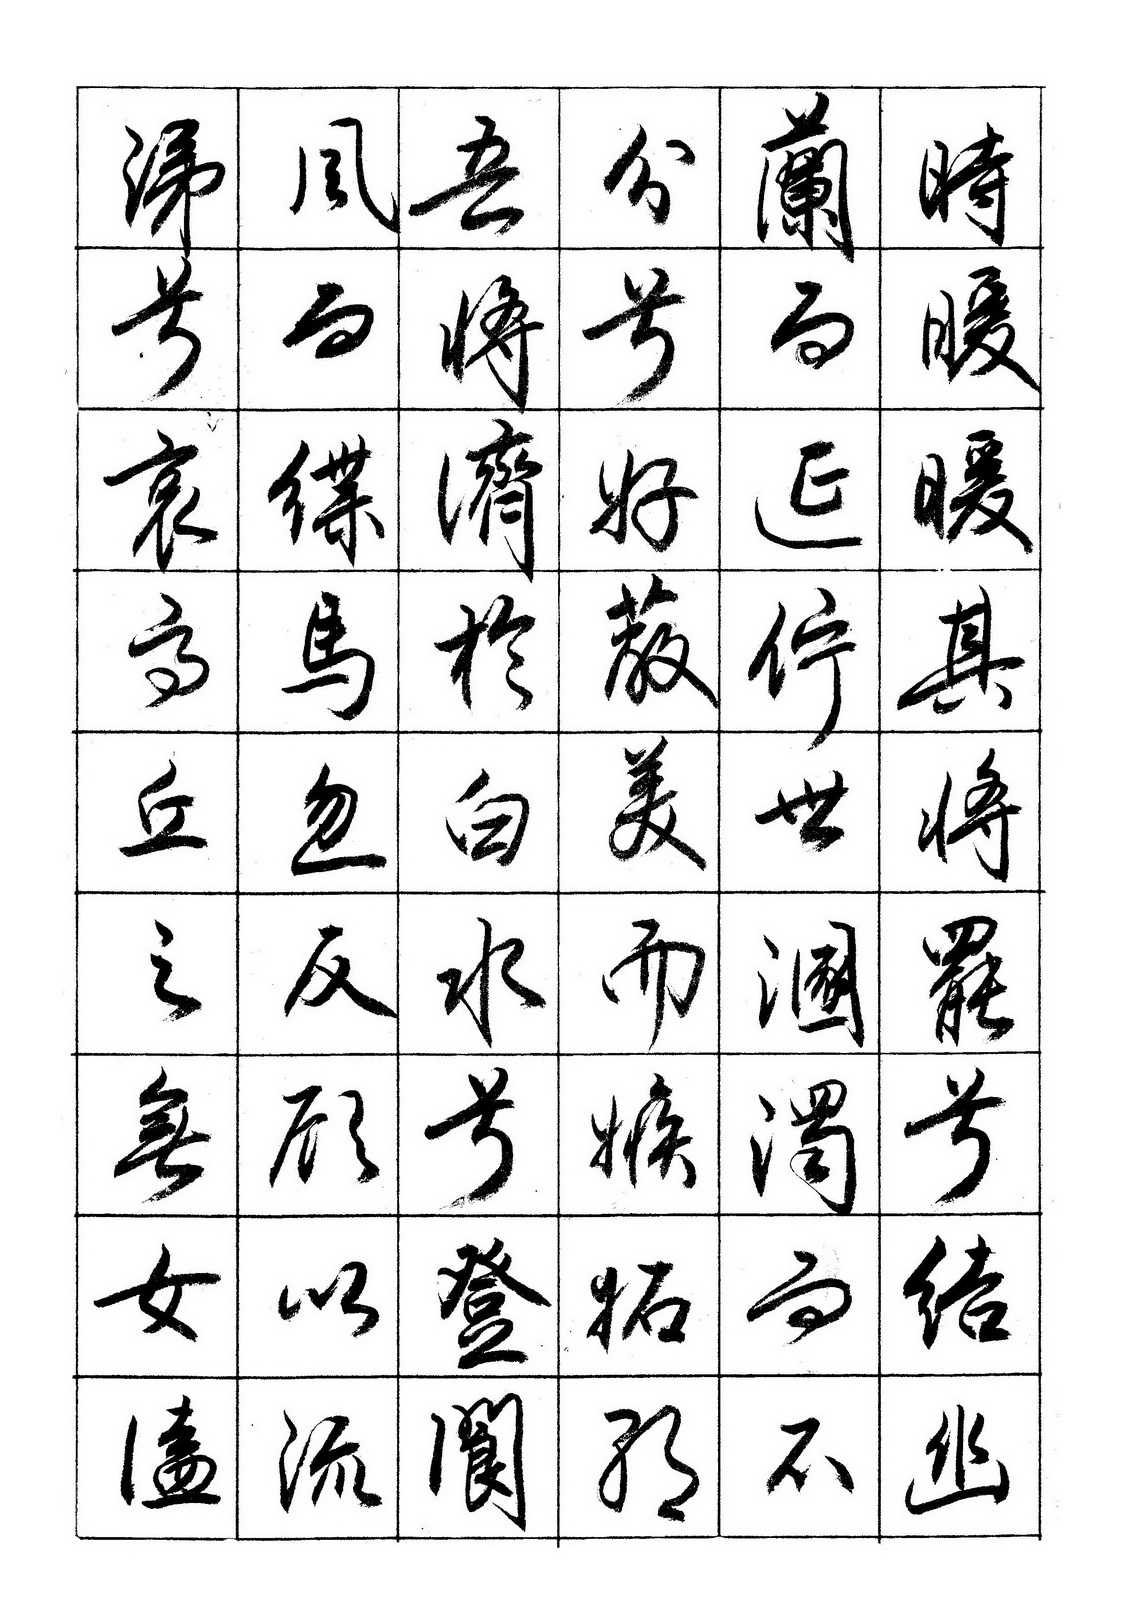 時暖暖其將罷兮結幽
蘭而延佇世溷濁而不
分兮好蔽美而嫉妬朝
吾將濟於白水兮登閬
風而緤馬忽反顧以流
涕兮哀高丘之無女溘